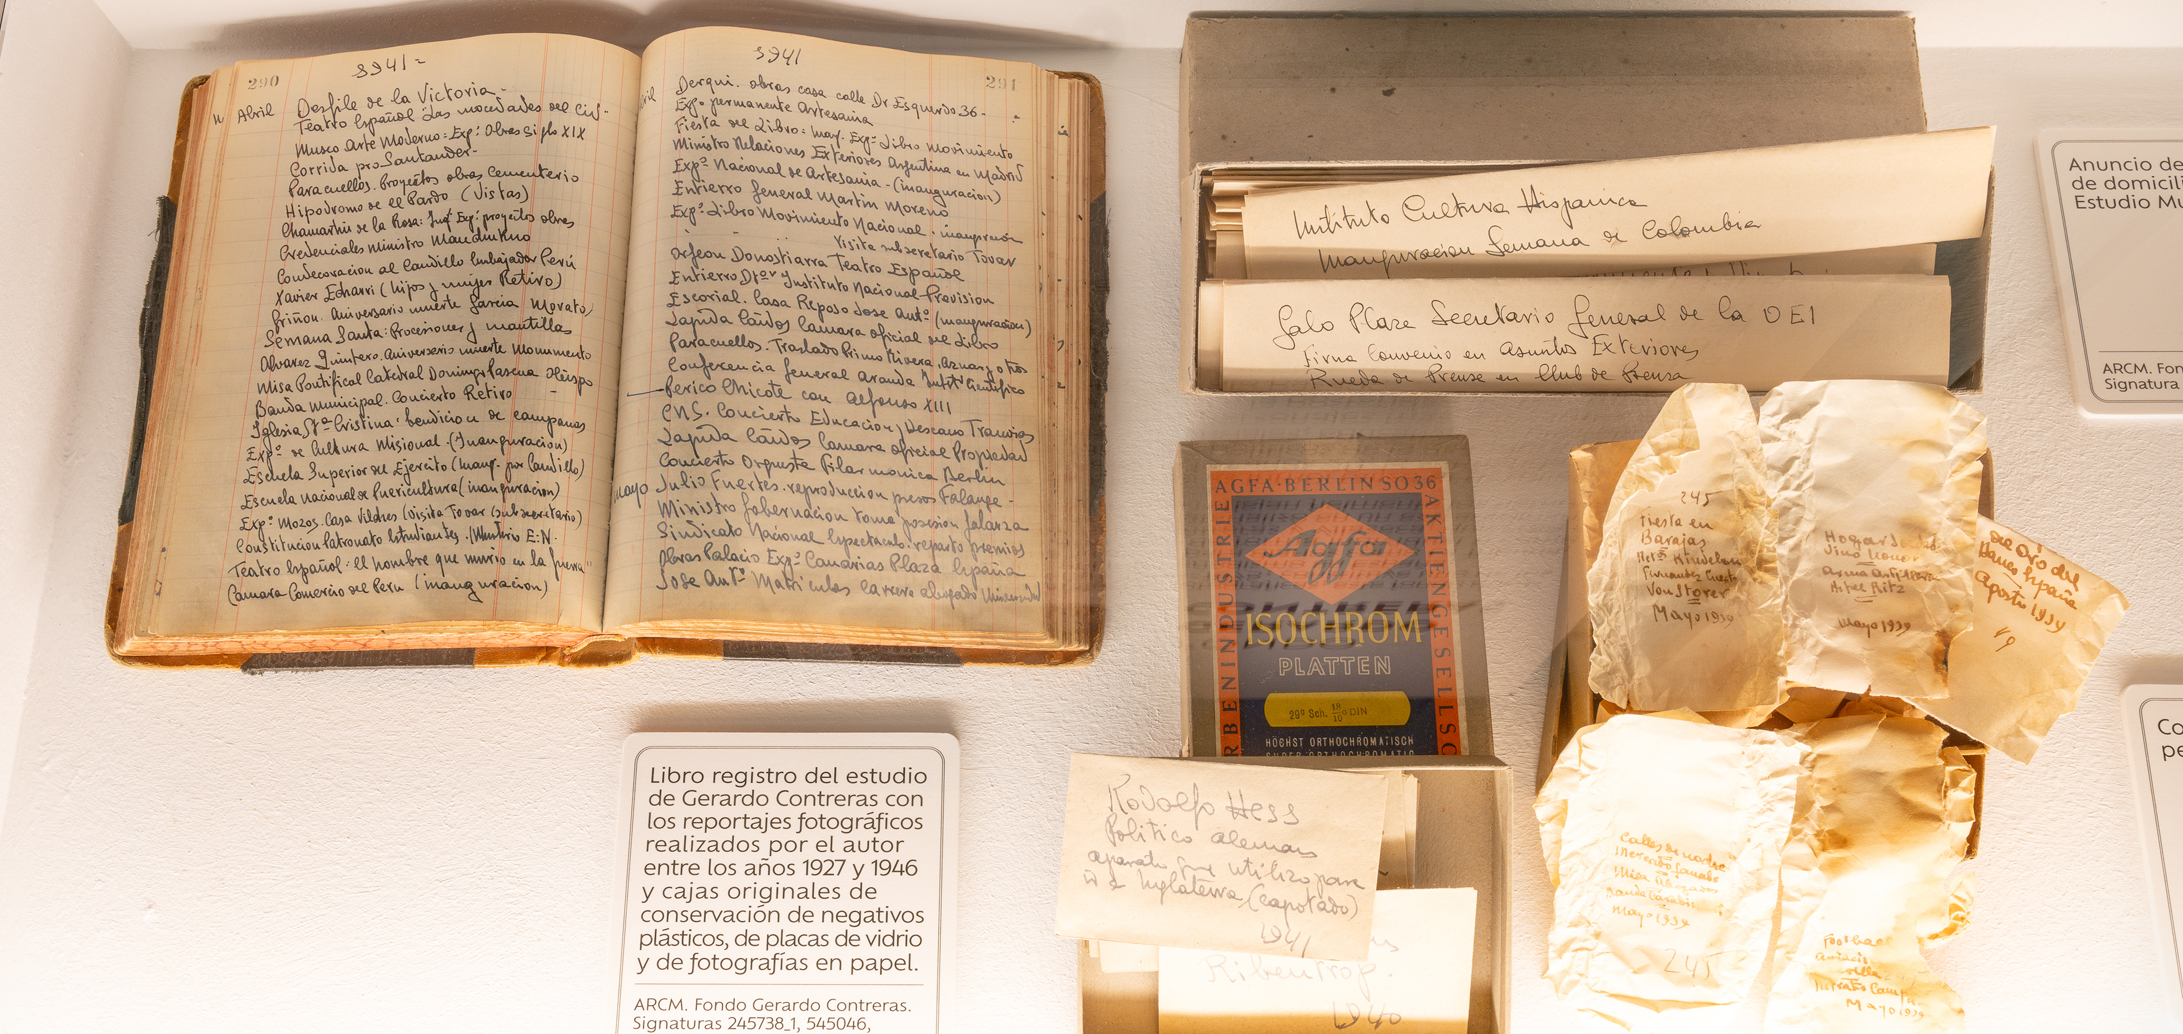 290
1941=
Abril
Desfile de la Victoria-
Teatro Español Las mocedades del Cid-
Museo Arte Moderno: Expº Obras siglo XIX
Corrida pro Santander-
Paracuellos. Proyectos obras cementerio
Hipodromo de el Pardo (Vistas)
Chamartin de la Rosa: Expº proyectos obras
Credenciales Ministro Manchukuo
Condecoracion al Caudillo Embajador Perú
Xavier Echarri (hijos y mujer Retiro)
Griñon. Aniversario muerte Garcia Morato
Semana Santa: Procesiones y mantillas
Alvarez Quintero. Aniversario muerte Monumento
Misa Pontifical Catedral Domingo Pascua Obispo
Banda Municipal. Concierto Retiro
Iglesia Stª Cristina: bendicion de campanas
Expº de Cultura Misional (Inauguracion)
Escuela Superior del Ejercito (Inaug. por Caudillo)
Escuela Nacional de Puericultura (inauguracion)
Expº Mozos. Casa Vilches (visita Tovar (subsecretario)
Constitucion Patronato Estudiantes. Ministerio E.N.
Teatro Español-El hombre que murio en la guerra"
Camara Comercio del Peru (inauguracion)
1941
291
Abril
Derqui. obras casa calle Dr Esquerdo 36-
Expº permanente Artesania
Fiesta del Libro: Inaug. Expº Libro Movimiento
Ministro Relaciones Exteriores Argentina en Madrid
Expº Nacional de Artesania-(inauguracion)
Entierro General Martin Moreno
Expº Libro Movimiento Nacional-inauguracion
Visita subsecretario Tovar
Orfeon Donostiarra Teatro Español
Entierro Dtor Instituto Nacional Prevision
Escorial. Casa Reposo Jose Antº (inauguracion)
Lapida Caidos Camara oficial del Libro
Paracuellos. Traslado Primo Rivera, Aznar y otros
Conferencia General Aranda Instº Cientifico
Perico Chicote con Alfonso XIII
C.N.S. Concierto Educacion y Descanso Tranvias
Lapida Caidos Camara oficial Propiedad
Concierto Orquesta Filarmonica Berlin
Mayo
Julio Fuertes. reproduccion presos Falange-
Ministro Gobernacion toma posesion Galarza
Sindicato Nacional Espectaculo. reparto premios
Obras Palacio Expº Canarias Plaza España
Jose Antº Matriculas carrera abogado Universidad
Instituto Cultura Hispanica
Inauguracion Semana de Colombia
Galo Plaza Secretario General de la OEI
Firma Convenio en Asuntos Exteriores
Rueda de Prensa en Club de Prensa
AGFA·BERLIN SO 36
AKTIENGESELLSC
RBENINDUSTRIE
Agfa
ISOCHROM
PLATTEN
29º Sch. 18/10º DIN
HÖCHST ORTHOCHROMATISCH
SUPER ORTHOCHROMATIC
Rodolfo Hess
Politico aleman
aparato que utilizo para
ir a Inglaterra (capotado)
1941
Ribentrop.
1940
245
Fiesta en
Barajas
Kindelan
Fernandez Cuesta
Von Storer
Mayo 1939
Hogar
Arma Artilleria
Hotel Ritz
Mayo 1939
del Oro del
Banco España
Agosto 1939
Mayo 1939
245
Mayo 1939
Libro registro del estudio
de Gerardo Contreras con
los reportajes fotográficos
realizados por el autor
entre los años 1927 y 1946
y cajas originales de
conservación de negativos
plásticos, de placas de vidrio
y de fotografías en papel.
ARCM. Fondo Gerardo Contreras.
Signaturas 245738_1, 545046,
Anuncio de
de domicili
Estudio Mu
ARCM. Fon
Signatura
Co
pe